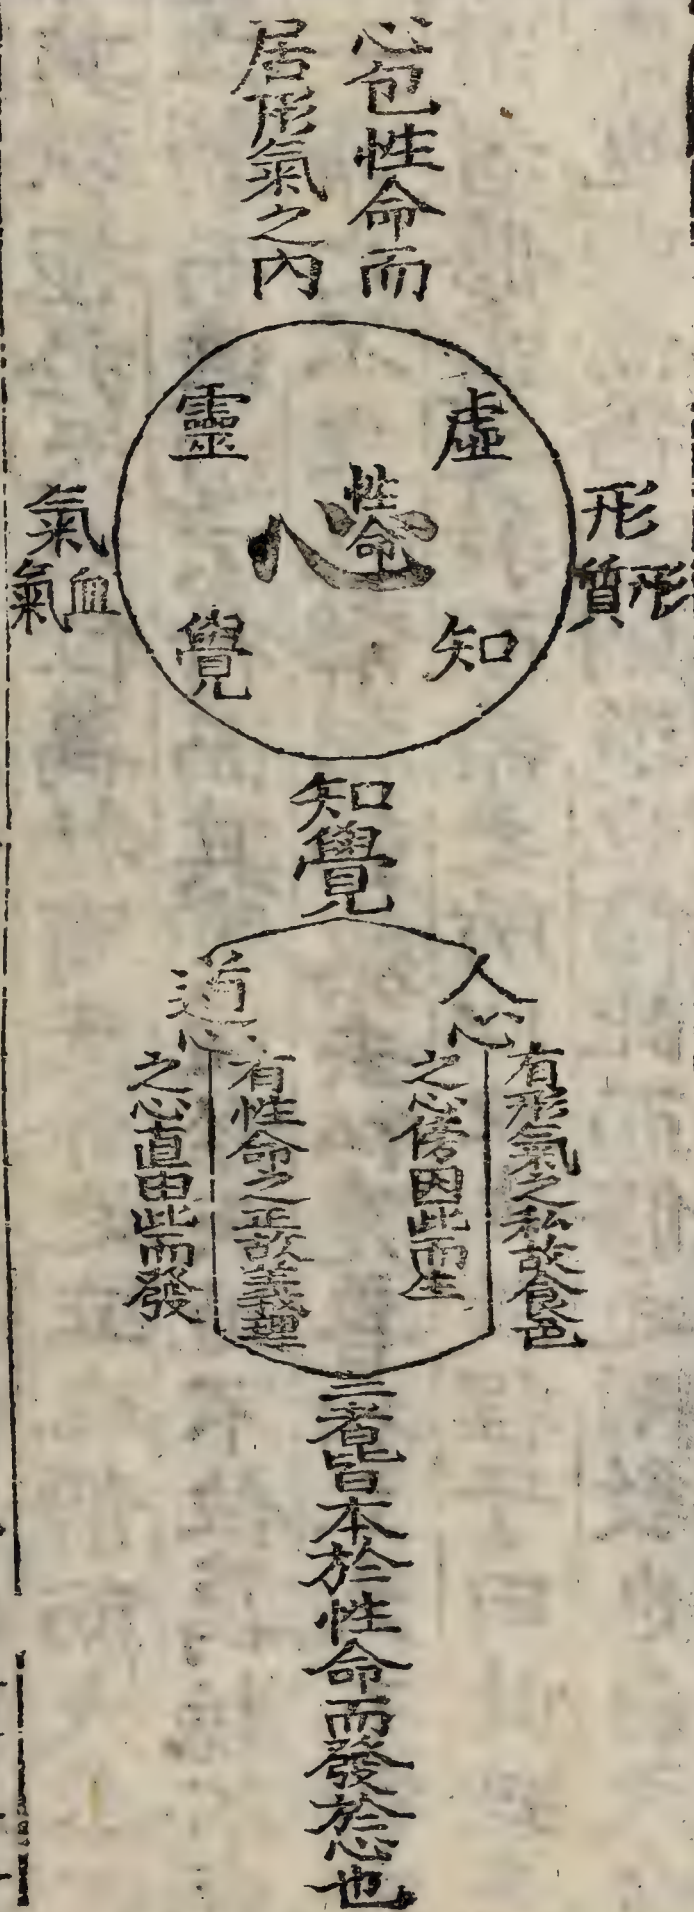 心包性命而
居形氣之內
虛
靈
性命
心
知
覺
形
形質
氣
血氣
知覺
人心
有形氣之私故食色
之心傍因此而生
道心
有性命之正故義理
之心直由此而發
二者皆本於性命而發於心也